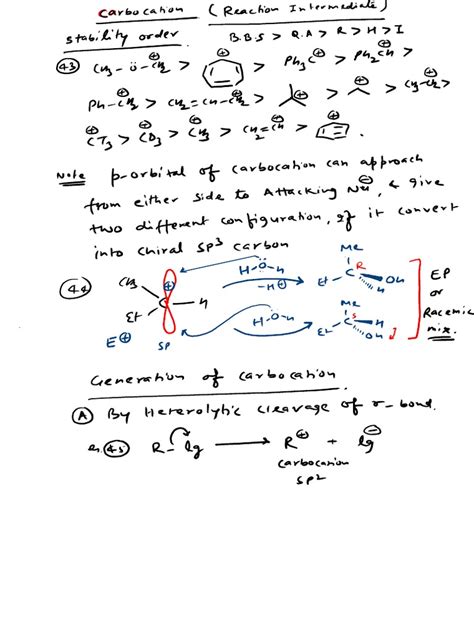 Carbocation (Reaction Intermediate)
Stability order. B.B.S > Q.A > R > H > I
(43) CH3 - Ö - CH2⊕ > ⊕ > Ph3C⊕ > Ph2CH⊕ >
Ph-CH2⊕ > CH2=CH-CH2⊕ > ⊕ > ⊕ > CH3-CH2⊕ >
⊕CT3 > ⊕CD3 > ⊕CH3 > CH2=CH⊕ > ⊕ .
Note p-orbital of carbocation can approach
from either side to Attacking Nu⊖, & give
two different configuration, if it convert
into chiral SP3 carbon
(44) CH3 Et C ⊕ H
E⊕
SP
H-Ö-H
-H⊕
H-Ö-H
Me Et C R OH H
Me Et C S H OH
EP
or
Racemic
mix.
Generation of carbocation
(A) By Heterolytic cleavage of σ-bond.
(45) R - lg → R⊕ + lg⊖
carbocation
SP2